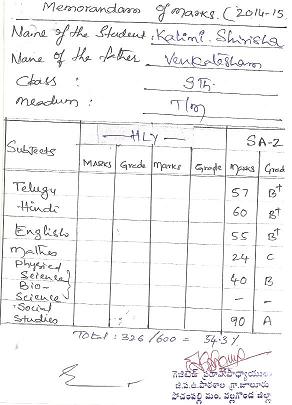 Memorandam of marks. (2014-15
Name of the Student: Katimi. Shirisha
Name of the father: Venkatesham
Class: 9th
meadum: T/m
Subjects HLY SA-2
Marks Grade Marks Grade Marks Grad
Telugu 57 B+
Hindi 60 B+
English 55 B+
Mathes 24 C
Physical
Science 40 B
Bio-
Science - -
Social
Studies 90 A
Total: 326/600 = 54.3%
గెజిటెడ్ ప్రధానోపాధ్యాయులు
జి.ప.ఉ.పాఠశాల గ్రా.జూలూరు
పోచంపల్లి మం. నల్లగొండ జిల్లా